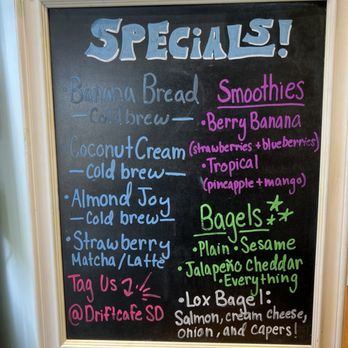 SPECiALS!
• Banana Bread
— Cold brew —
• Coconut Cream
— cold brew —
• Almond Joy
— cold brew —
• Strawberry
Matcha/Latte
Tag Us
@Driftcafe SD
Smoothies
• Berry Banana
(strawberries + blueberries)
• Tropical
(pineapple + mango)
Bagels
• Plain • Sesame
• Jalapeño Cheddar
• Everything
• Lox Bagel:
Salmon, cream cheese,
onion, and capers!